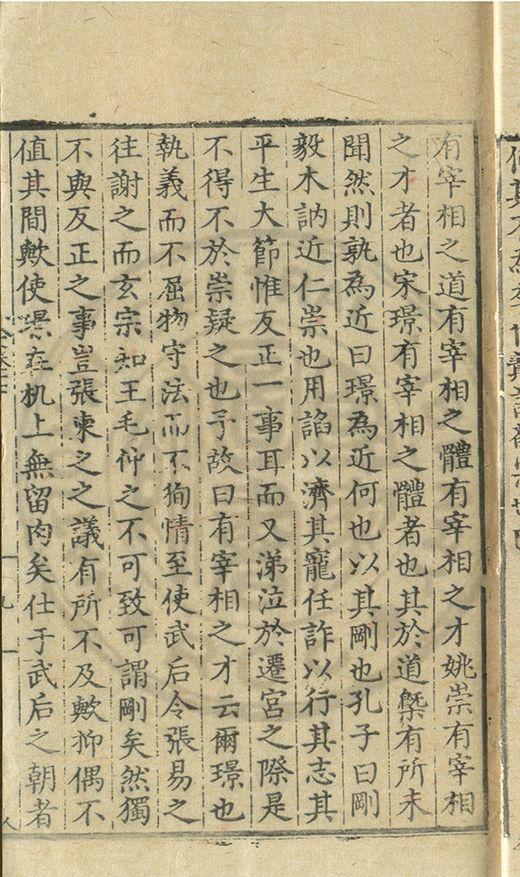 有宰相之道有宰相之體有宰相之才姚崇有宰相
之才者也宋璟有宰相之體者也其於道槩有所未
聞然則孰為近曰璟為近何也以其剛也孔子曰剛
毅木訥近仁崇也用諂以濟其寵任詐以行其志其
平生大節惟反正一事耳而又涕泣於遷宮之際是
不得不於崇疑之也予故曰有宰相之才云爾璟也
執義而不屈物守法而不狥情至使武后令張易之
往謝之而玄宗知王毛仲之不可致可謂剛矣然獨
不與反正之事豈張柬之之議有所不及歟抑偶不
值其間歟使璟在机上無留肉矣仕于武后之朝者